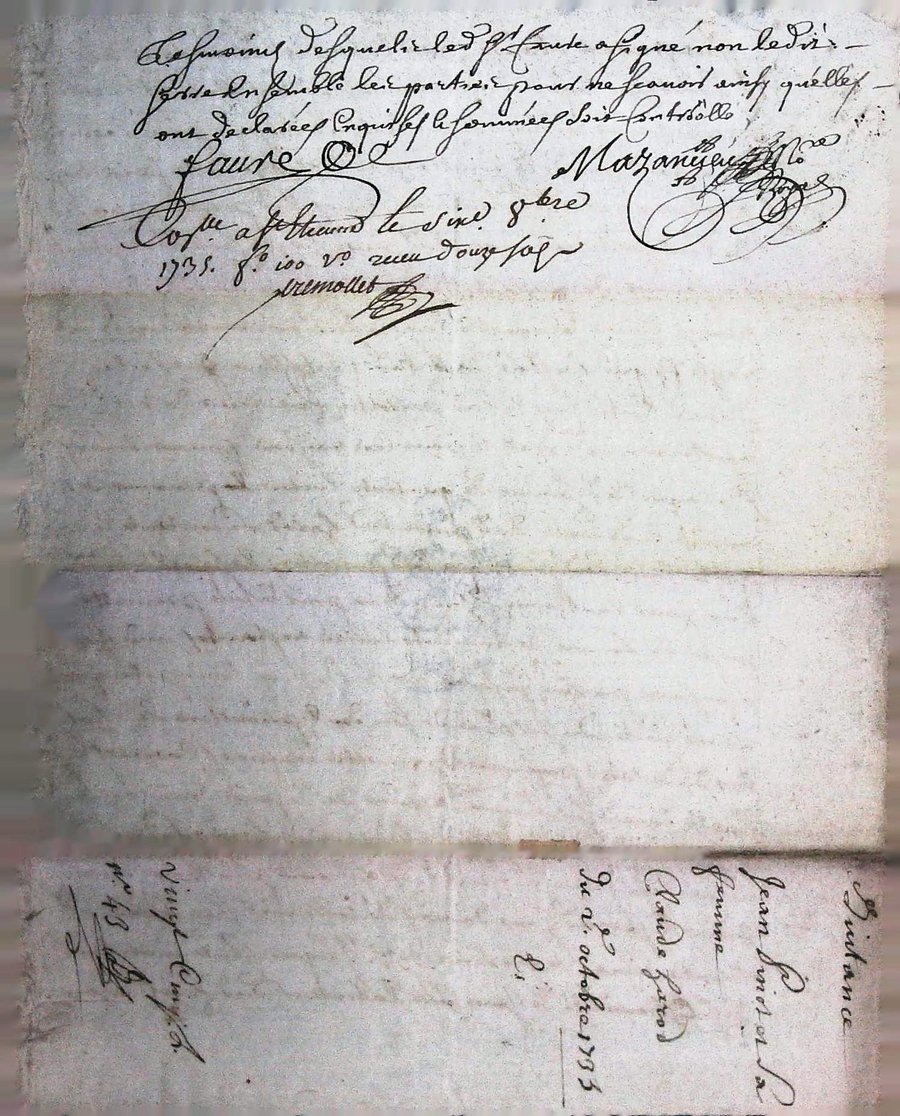 tesmoins desquels led. Sr. faure a signé non ledit
serre ensemble les parties pour ne scavoir ainsy qu'elles
ont declarées enquises & sommées soit Controllé
faure Mazancieu No.re Royal
Con.lle a St Etienne le six.e 8bre
1735. f.o 100 v.o receu douze sols
tremollet
Quittance
Jean Pinot et Sa
femme
Claude Gerod
du 2.e octobre 1735
vingt Cinq. L.
n.o 43